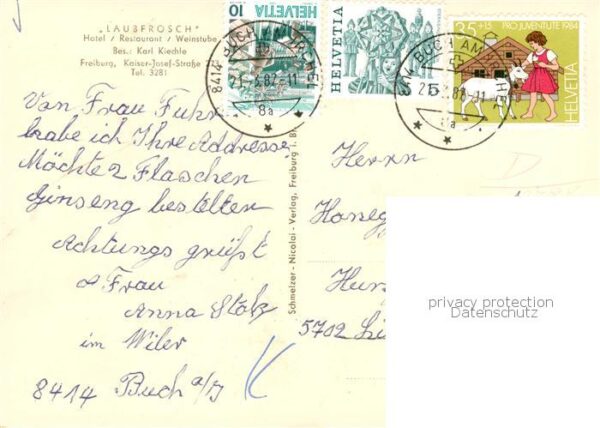 „LAUBFROSCH"
Hotel / Restaurant / Weinstube
Bes.: Karl Kiechle
Freiburg, Kaiser-Josef-Straße 27
Tel. 3281
10
HELVETIA
HELVETIA
5
25+15 PRO JUVENTUTE 1984
HELVETIA
8414 BUCH AM IRCHEL
8a
8414 BUCH AM IRCHEL
8a
Von Frau Fuhr
habe ich Ihre Addresse
Möchte 2 Flaschen
Ginseng bestellen
Achtungs grüßt
Frau
Anna Stolz
im Wiler
8414 Buch a/I
Schmelzer-Nicolai-Verlag, Freiburg i. B
Herrn
Honeg
5702
privacy protection
Datenschutz